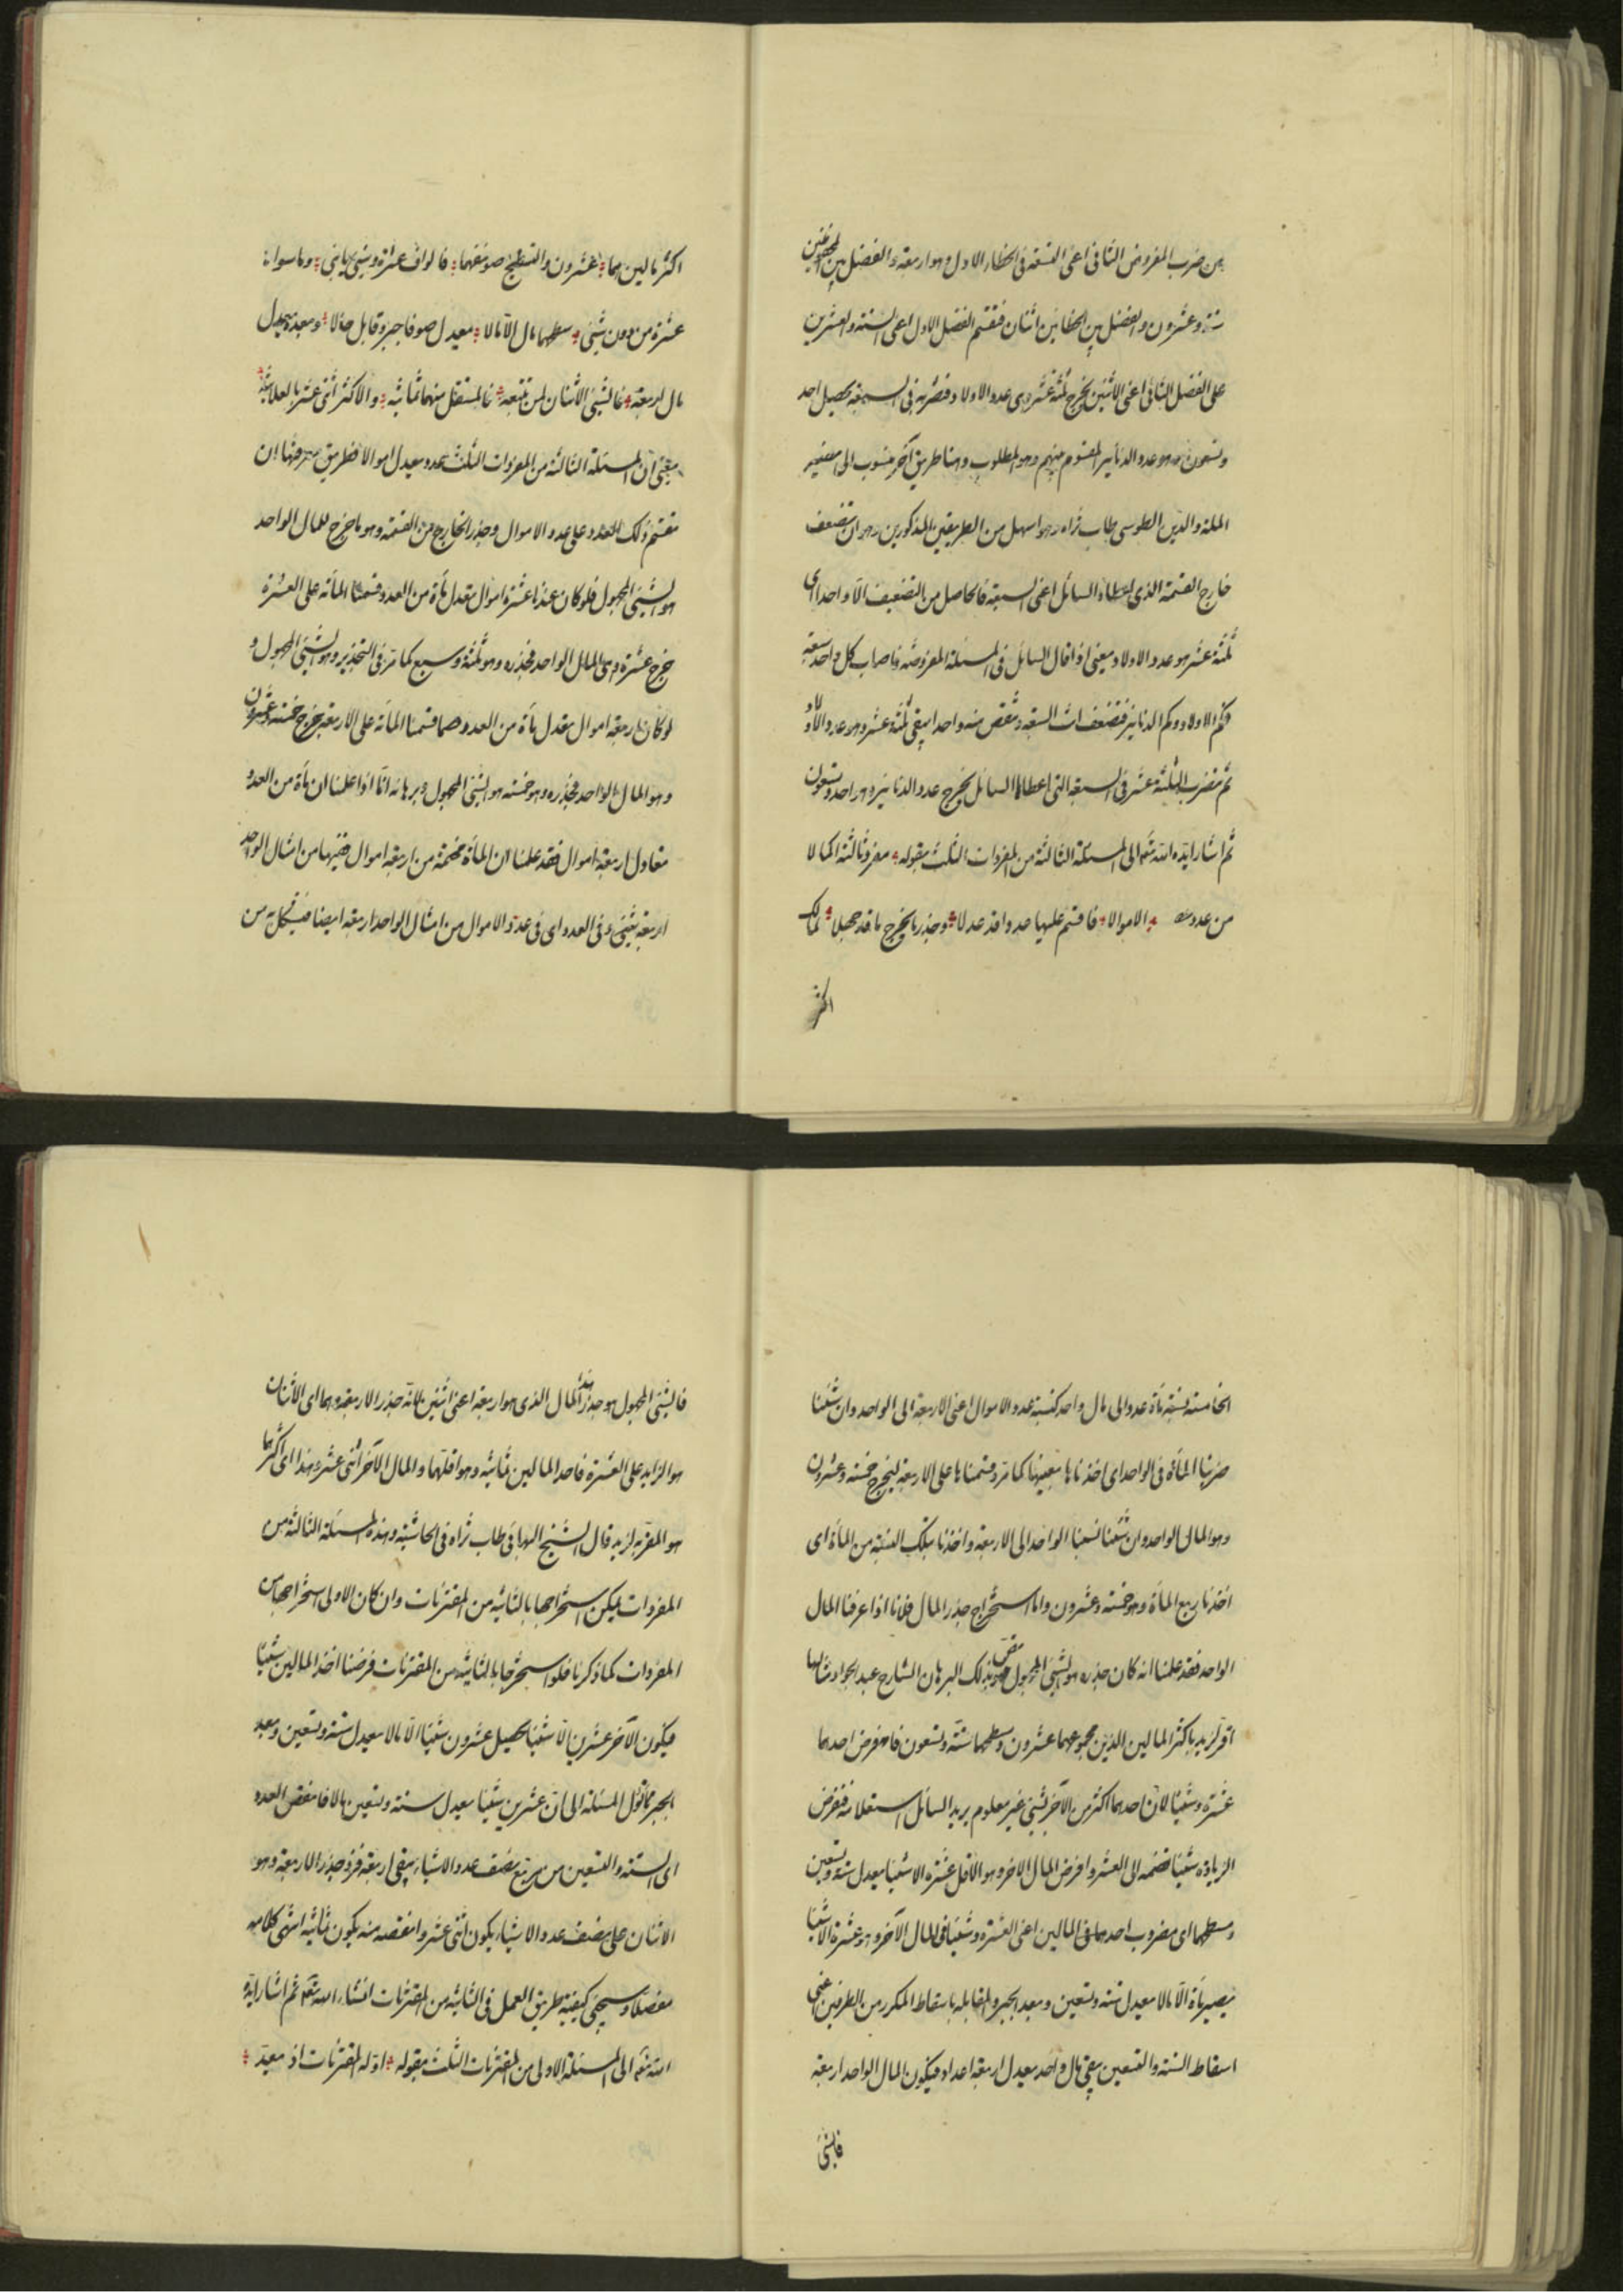 من ضرب المفروض الثانى اعنى التسعة فى الخطاء الاول وهو اربعة والفضل بين المحفوظين
ستة وعشرون والفضل بين الخطائين اثنان فنقسم الفضل الاول اعنى الستة والعشرين
على الفضل الثانى اعنى الاثنين يخرج ثلثة عشر وهى عدد الاولاد فنضربه فى السبعة يحصل احد
وتسعون وهو عدد الدنانير المقسوم بينهم وهو المطلوب وهنا طريق آخر منسوب الى نصير
الملة والدين الطوسى طاب ثراه وهو اسهل من الطريقين المذكورين وهو ان تضعف
خارج القسمة الذى اعطاه السائل اعنى السبعة فالحاصل من التضعيف الا واحدا اى
ثلثة عشر هو عدد الاولاد يعنى اذا قال السائل فى المسئلة المفروضة واصاب كل واحد سبعة
فكم الاولاد وكم الدنانير فتضعف انت السبعة وتنقص منه واحدا يبقى ثلثة عشر وهو عدد الاولاد
ثم تضرب الثلثة عشر فى السبعة التى اعطاها السائل يخرج عدد الدنانير وهو احد وتسعون
ثم اشار ايده الله تعالى الى المسئلة الثالثة من المفردات الثلث بقوله مفردثالثة اكمالا
من عدد الاموالا فاقسم عليها عددا قد عدلا وجذر ما يخرج ما قد جهلا كمالك
اكثر
اكثر مالين هما عشرون والتسطيح صو نفهما فالواف عشرة وشىء يابنى وما سواه
عشرة من دون شىء سطحهما مال الا مالا يعدل صو فاجبر وقابل حالا وبعده يعدل
مال اربعة فالشىء الاثنان لمن تتبعه فالمستقل منهما ثمانية والاكثر اثنى عشر بالعلانية
يعنى ان المسئلة الثالثة من المفردات الثلث عدد يعدل اموالا فطريق معرفتها ان
تقسم ذلك العدد على عدد الاموال وجذر الخارج من القسمة وهو ما خرج للمال الواحد
هو الشىء المجهول فلو كان عندنا عشرة اموال تعدل مأة من العدد وقسمنا المأة على العشرة
خرج عشرة وهى المال الواحد فجذره وهو ثلثة وسبع كما مر فى التجذير وهو الشىء المجهول و
لو كان اربعة اموال تعدل مأة من العدد وقسمنا المأة على الاربعة يخرج خمسة وعشرون
وهو المال الواحد فجذره وهو خمسة هو الشىء المجهول وبرهانه انا اذا علمنا ان مأة من العدد
معادل اربعة اموال فقد علمنا ان المأة مجتمعة من اربعة اموال ففيها من امثال الواحد
اربعة يعنى وفى العدد اى فى عدد الاموال من امثال الواحد اربعة ايضا فبشكل يه من
الخامسة نسبة مأة عدد الى مال واحد كنسبة عدد الاموال اعنى الاربعة الى الواحد وان شئنا
ضربنا المأة فى الواحد اى اخذناها بعينها كما مر وقسمناها على الاربعة ليخرج خمسة وعشرون
وهو المال الواحد وان شئنا نسبنا الواحد الى الاربعة واخذنا بتلك النسبة من المأة اى
اخذنا ربع المأة وهو خمسة وعشرون واما استخراج جذر المال فلانا اذا عرفنا المال
الواحد فقد علمنا انه كان جذره هو الشىء المجهول نقض بذلك البرهان الشارح عبد الجواد مثالها
اقر لزيد باكثر المالين الذين مجموعهما عشرون وسطحهما ستة وتسعون فافرض احدهما
عشرة وشيئا لان احدهما اكثر من الآخر بشىء غير معلوم يريد السائل استعلامه فنفرض
الزيادة شيئا نضمه الى العشر وافرض المال الآخر وهو الاقل عشرة الا شيئا يعدل ستة وتسعين
وسطحهما اى مضروب احدهما فى المالين اعنى العشرة وشيئا فى المال الآخر وهو عشرة الا شيئا
فيصير مأة الا مالا يعدل ستة وتسعين وبعد الجبر والمقابلة باسقاط المكرر من الطرفين اعنى
اسقاط الستة والتسعين يبقى مال واحد يعدل اربعة اعداد فيكون المال الواحد اربعة
فالشىء
فالشىء المجهول هو جذر هذا المال الذى هو اربعة اعنى اثنين لانه جذر الاربعة وهما اى الاثنان
هو الزايد على العشرة فاحد المالين ثمانية وهو اقلهما والمال الآخر اثنى عشر وهذا اى اكثرهما
هو المقر به لزيد قال الشيخ البهائى طاب ثراه فى الحاشية وهذه المسئلة الثالثة من
المفردات يمكن استخراجها بالثانية من المقترنات وان كان الاولى استخراجها من
المفردات كما ذكرنا فلو استخرجنا بالثانية من المقترنات فرضنا احد المالين شيئا
فيكون الآخر عشرين الا شيئا يحصل عشرون شيئا الا مالا يعدل ستة وتسعين وبعد
الجبر تأول المسئلة الى ان عشرين شيئا يعدل ستة وتسعين مالا فانقص العدد
اى الستة والتسعين من مربع نصف عدد الاشياء يبقى اربعة فزد جذر الاربعة وهو
الاثنان على نصف عدد الاشياء يكون اثنى عشر وانقصه منه يكون ثمانية انتهى كلامه
مفصلا وسيجئ كيفية طريق العمل فى الثانية من المقترنات انشاء الله تعالى ثم اشار ايده
الله تعالى الى المسئلة الاولى من المقترنات الثلث بقوله اوله المقترنات اذ يعد